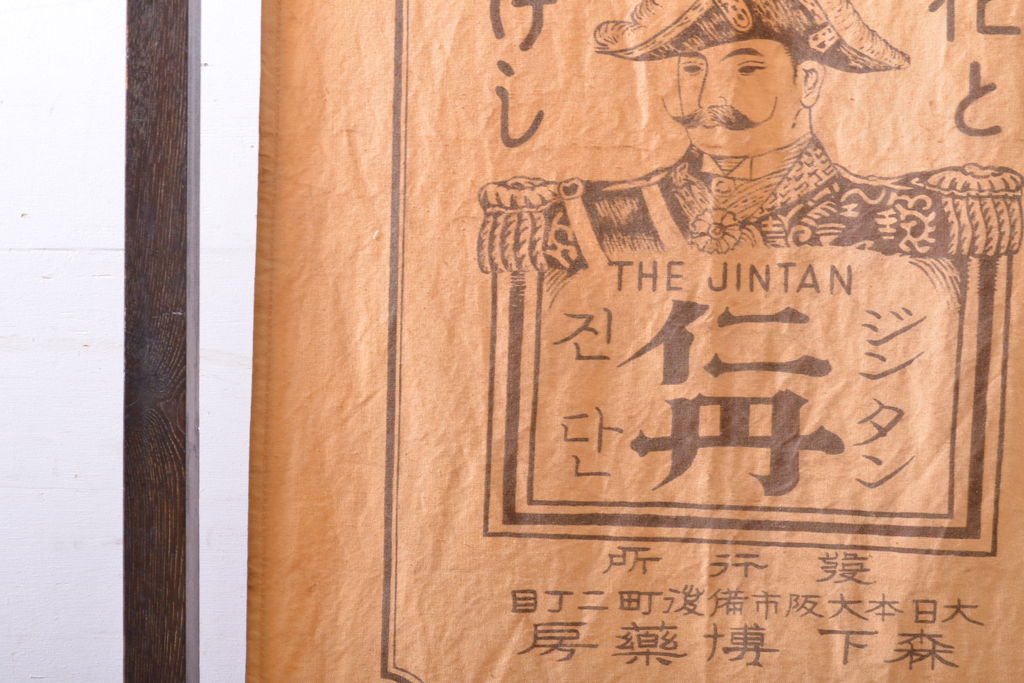 化と
けし
THE JINTAN
仁丹
ジンタン
진단
發行所
大日本大阪市備後町二丁目
森下博藥房